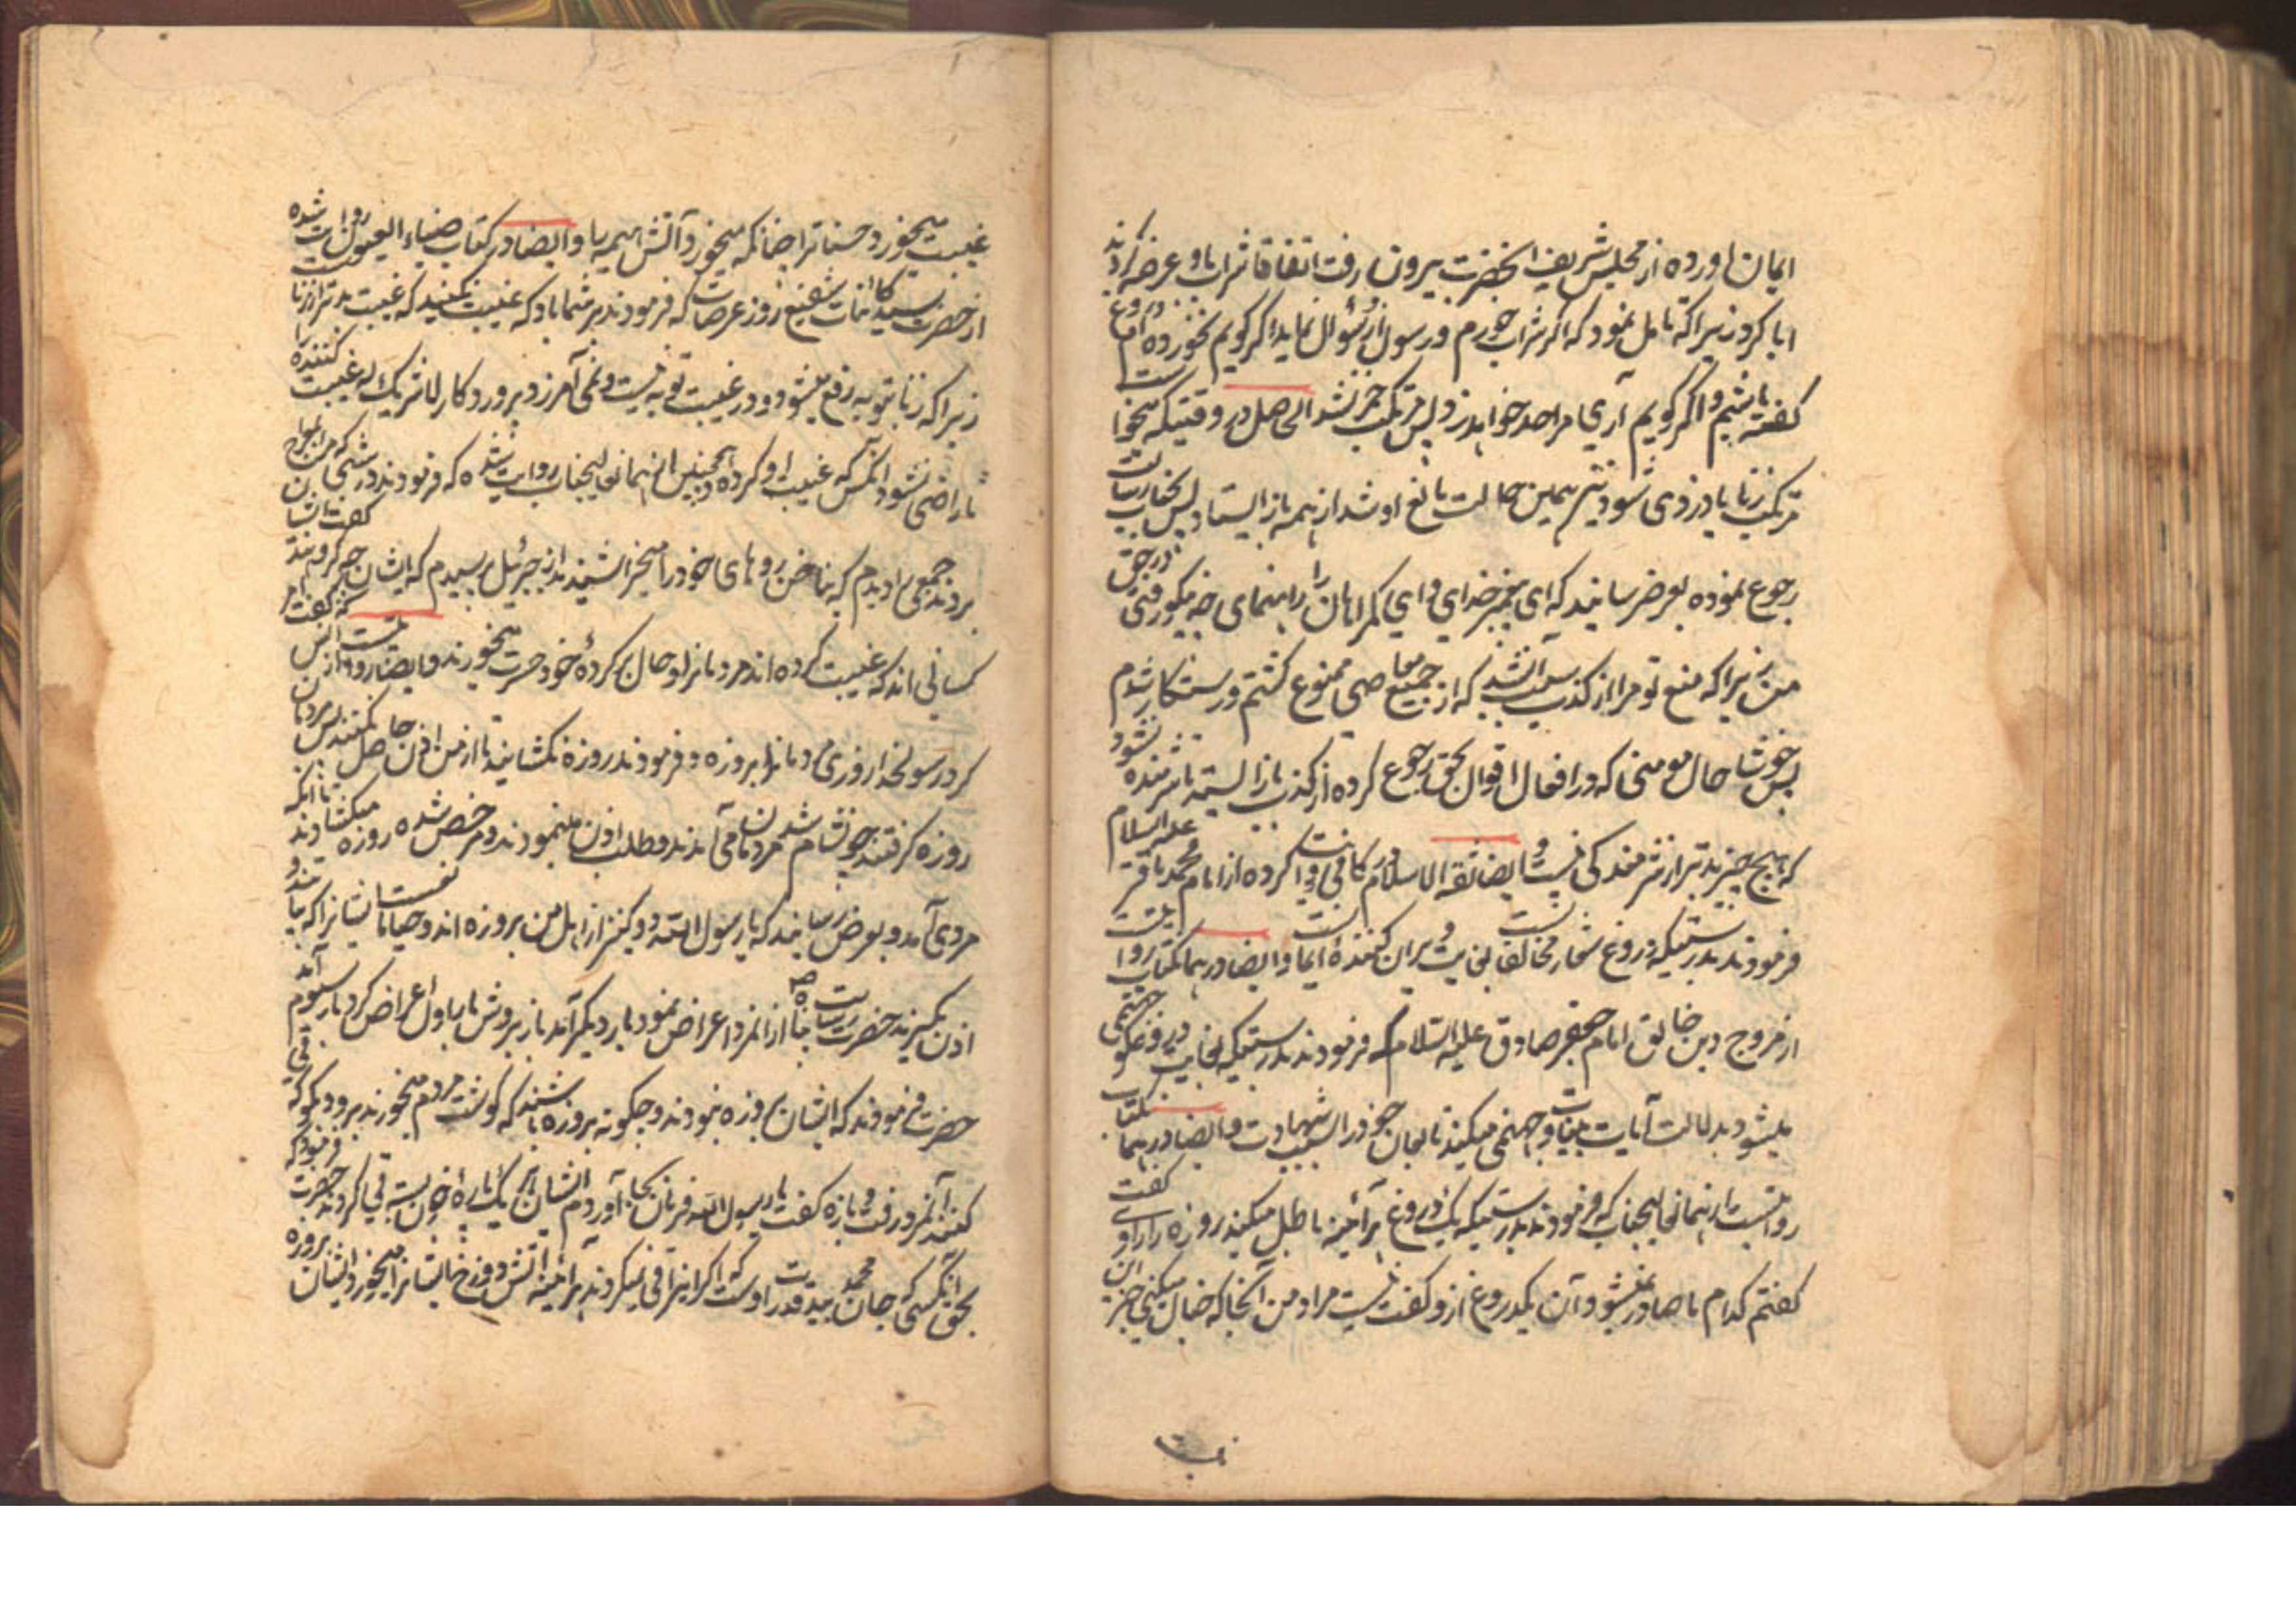 ایمان اورده از مجلس شریف انحضرت بیرون رفت اتفاقا شراب باو عرضه کردند
ابا کرد زیرا که تامل نمود که اگر شراب خورم و رسول از من سؤال نماید اگر کویم نخورده ام دروغ
کفته باشم و اگر کویم آری مرا حد خواهد زد پس مرتکب خمر نشد الحاصل در وقتیکه میخواست
مرتکب زنا یا دزدی شود نیز همین حالت مانع او شد از همه باز ایستاد پس بخدمت رسالت
رجوع نموده بعرض رسانید که ای پیغمبر خدای و ای کمراهان را راهنمای چه نیکو رفتی در حق
من زیرا که منع تو مرا از کذب سبب آن شد که از جمیع معاصی ممنوع کشتم و رستکار شدم
پس خوشا حال مومنی که در افعال و اقوال بحق رجوع کرده از کذب باز ایستد تا شرمنده نشود
که هیچ چیز بدتر از شرمندکی نیست و ایضا ثقة الاسلام در کافی روایت کرده از امام محمد باقر علیه السلام
فرمودند بدرستیکه دروغ ویران کننده ایمانست و ایضا در همان کتاب روایتست
از مروج دین خالق امام جعفر صادق علیه السلام که فرمودند بدرستیکه دروغکو جهنمی
میشود بدلالت آیات بینات و جهنمی میکند تابعان خود را بسبب شهادت و ایضا در همان کتاب
روایتست از همان عالیجناب که فرمودند بدرستیکه یک دروغ هرآینه باطل میکند روزه را راوی کفت
کفتم کدام ما صادر نمیشود آن یکدروغ ازو کفت نیست مراد من آنجا که خیال میکنی جز این
غیبت میخورد حسنات را چنانکه میخورد آتش هیمه را و ایضا در کتاب ضیاء العیون روایت شده
از حضرت سید کائنات شفیع روز عرصات که فرمودند بر شما باد که غیبت نکنید که غیبت بدتر از زنا
زیرا که زنا بتوبه رفع میشود و در غیبت توبه نیست و نمی آمرزد پروردکار لاشریک له غیبت کننده را
تا راضی نشود آنکس که غیبت او کرده و همچنین از همان عالیجناب روایت شده که فرمودند در شبی که مرا بمعراج
بردند جمعی را دیدم که بناخن روهای خود را میخراشیدند از جبرئیل پرسیدم که ایشان چه کروهند کفت اینان
کسانی اند که غیبت کرده اند مردمانرا و حال بر کرده خود حسرت میخورند و ایضا روایتست از انس که کفت امر
کرد رسولخدا روزی مردمانرا بروزه و فرمودند روزه نکشایند تا از من اذن حاصل نکنند پس مردمان
روزه کرفتند چون شام شد مردمان می آمدند و طلب اذن مینمودند و مرخص شده روزه میکشادند تا آنکه
مردی آمد و بعرض رسانید که یا رسول الله دو کنیز از اهل من بروزه اند و حیا مانع ایشانست که بیایند و
اذن بکیرند حضرت رسالت پناه از آنمرد اعراض نمود بار دیکر آمد باز بروش بار اول اعراض کرد بار سوم آمد
حضرت فرمودند که ایشان بروزه نبودند و چکونه بروزه باشند که کوشت مردم میخورند برو و بکو که قی
کنند آنمرد رفت و بازآمده کفت یا رسول الله فرمان بجا آوردم ایشان هر یک پاره خون بسته قی کردند حضرت فرمود که
بحق آنکسی که جان محمد بید قدرت اوست که اکر اینرا قی نمیکردند هرآینه آتش دوزخ ایشانرا میخورد ایشان بروزه